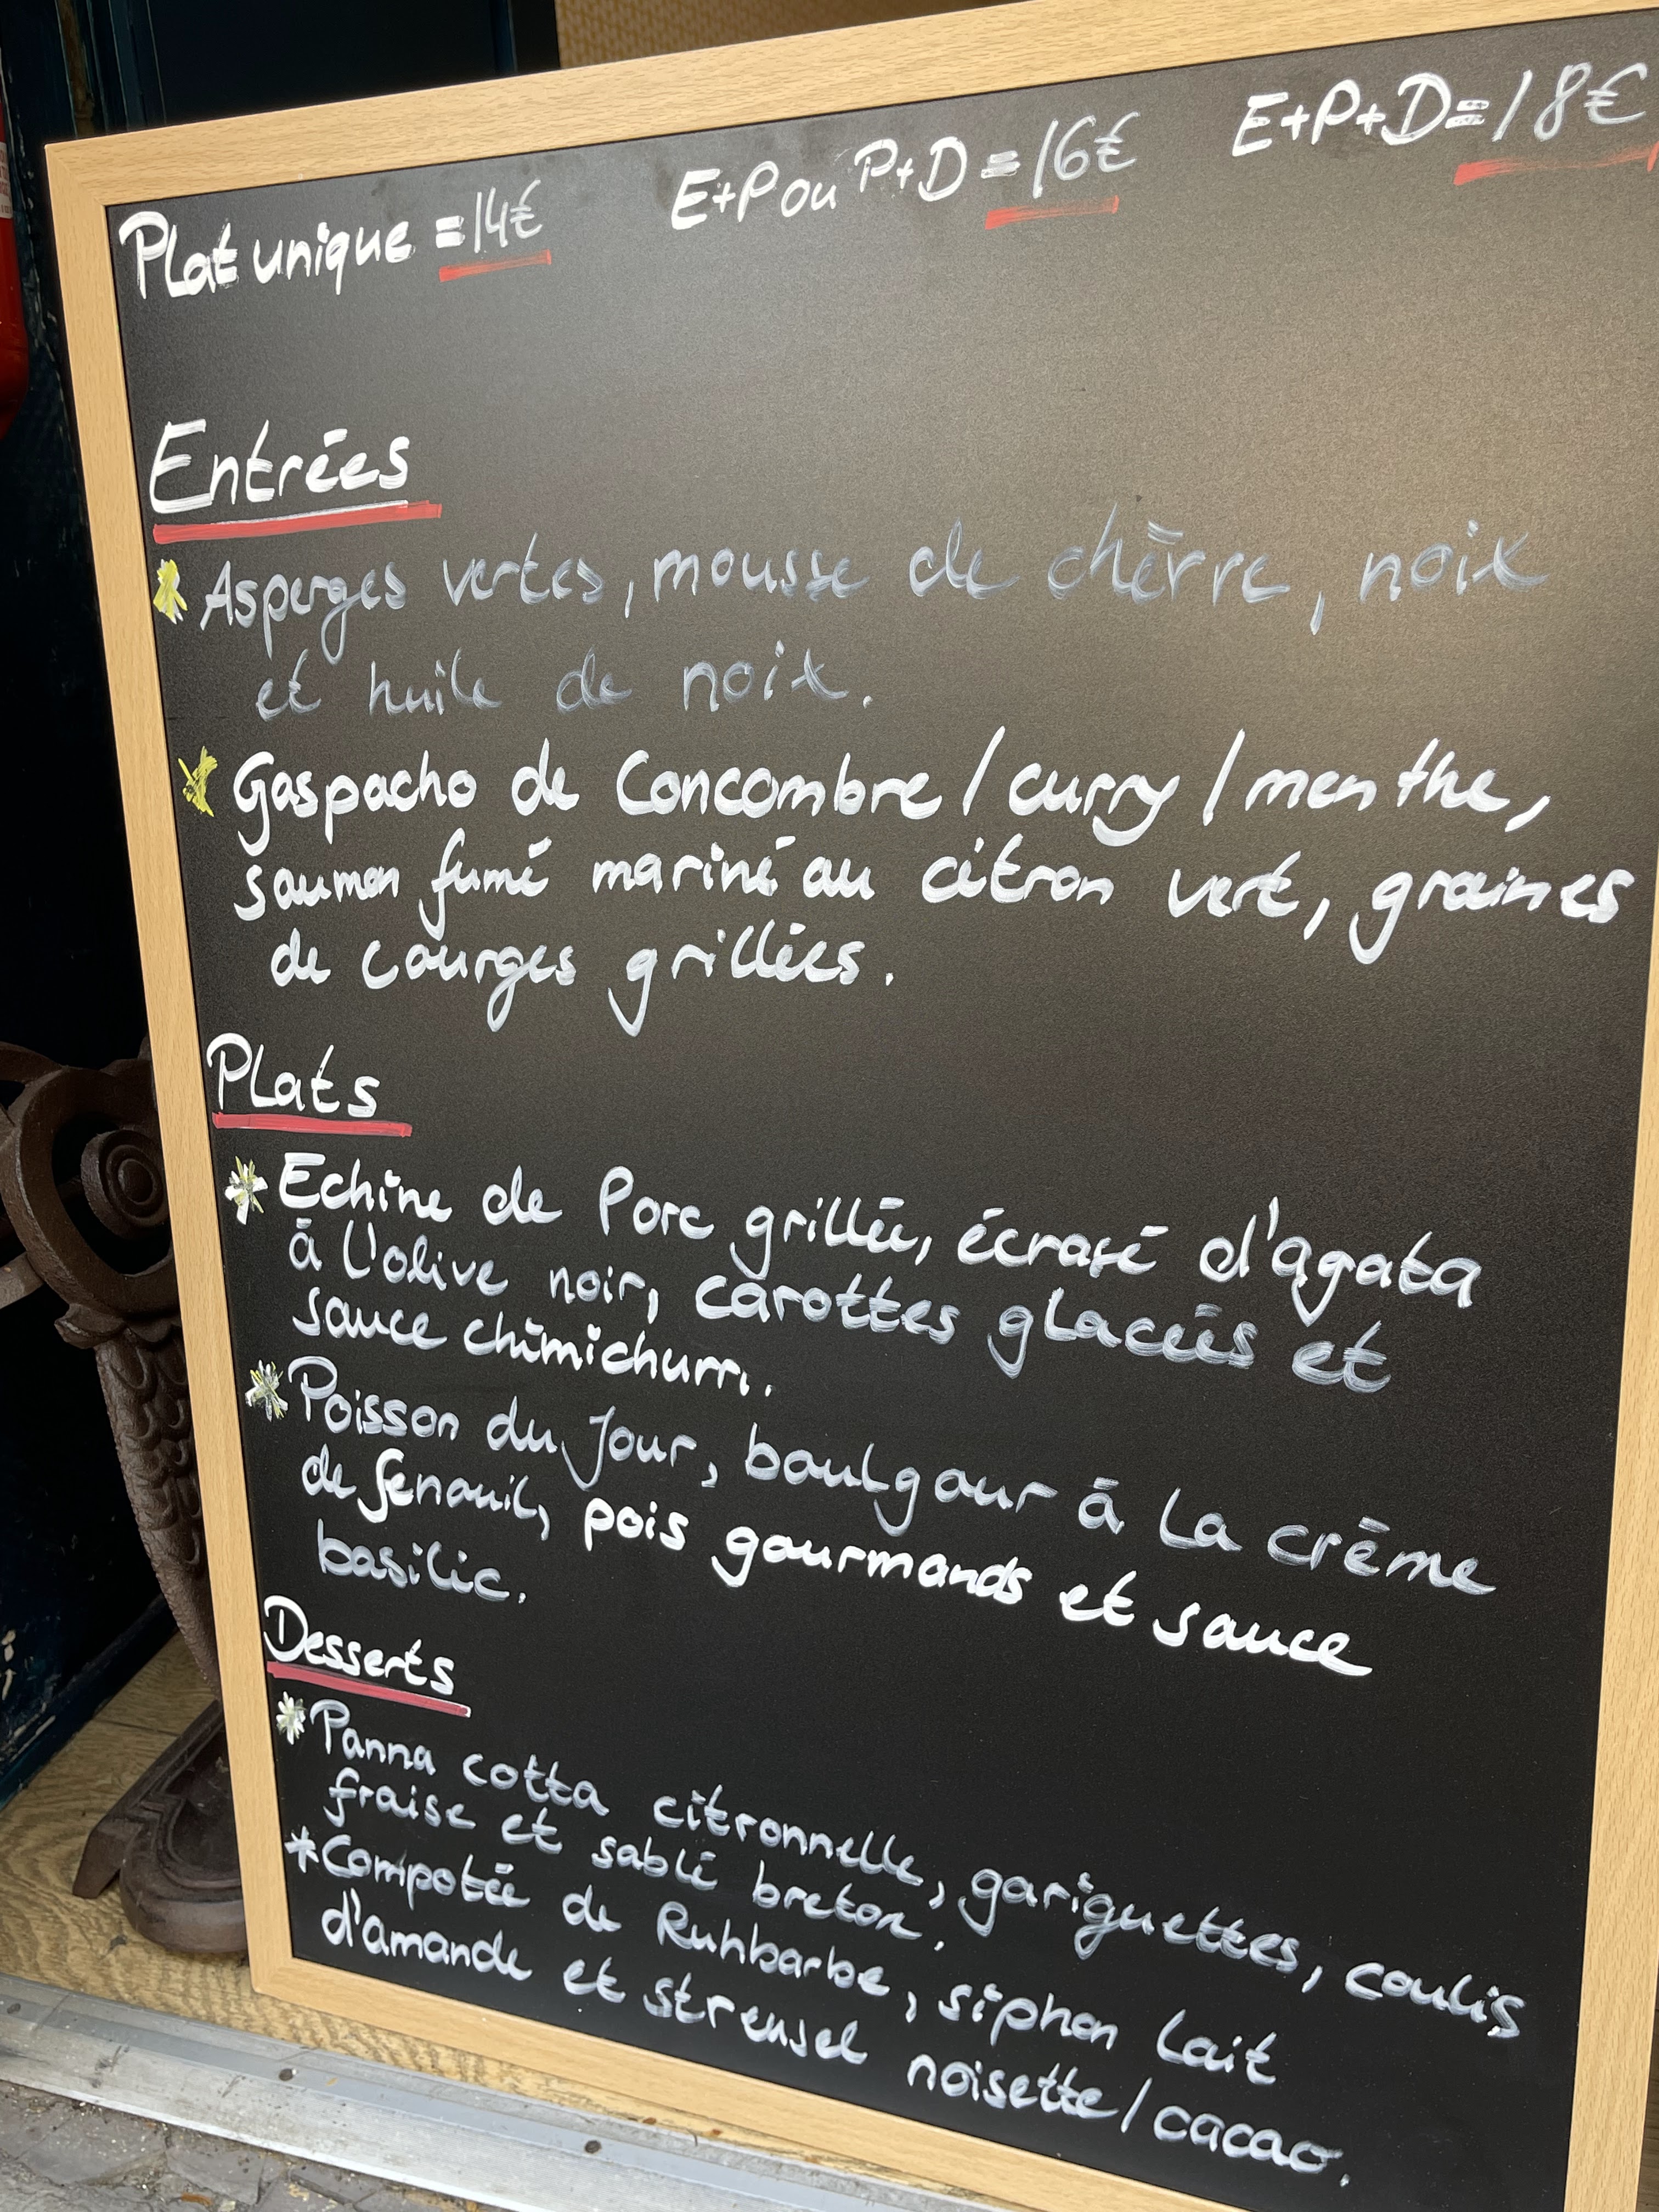 Plat unique = 14€
E+P ou P+D = 16€
E+P+D = 18€
Entrées
* Asperges vertes, mousse de chèvre, noix
et huile de noix.
* Gaspacho de Concombre / curry / menthe,
saumon fumé mariné au citron vert, graines
de courges grillées.
Plats
* Echine de Porc grillée, écrasé d'agata
à l'olive noir, carottes glacées et
sauce chimichurri.
* Poisson du Jour, boulgour à la crème
de fenouil, pois gourmands et sauce
basilic.
Desserts
* Panna cotta citronnelle, gariguettes, coulis
fraise et sablé breton.
* Compotée de Ruhbarbe, siphon lait
d'amande et streusel noisette/cacao.